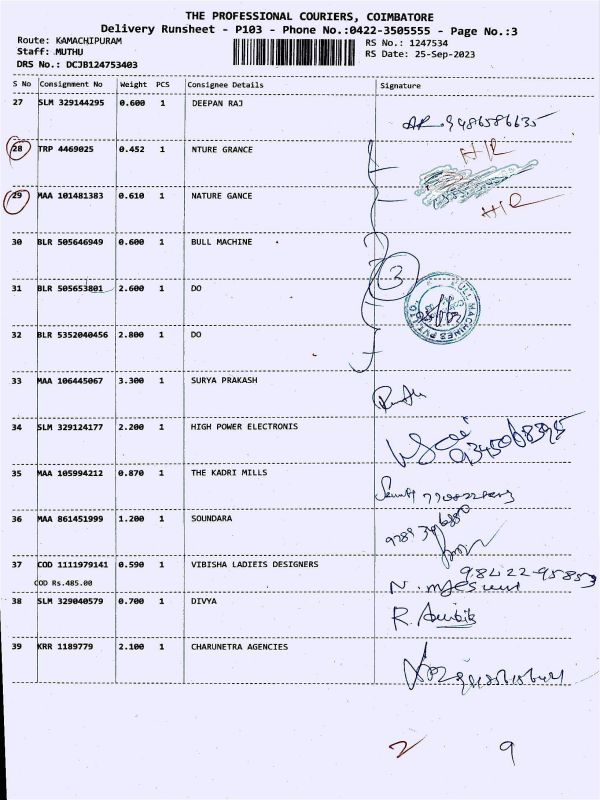 THE PROFESSIONAL COURIERS, COIMBATORE
Delivery Runsheet - P103 - Phone No.:0422-3505555 - Page No.:3
Route: KAMACHIPURAM
RS No.: 1247534
Staff: MUTHU
RS Date: 25-Sep-2023
DRS No.: DCJB124753403
S No Consignment No Weight PCS Consignee Details Signature
27 SLM 329144295 0.600 1 DEEPAN RAJ
9486586635
28 TRP 4469025 0.452 1 NTURE GRANCE
H/R
29 MAA 101481383 0.610 1 NATURE GANCE
H/R
30 BLR 505646949 0.600 1 BULL MACHINE
3
31 BLR 505653801 2.600 1 DO
32 BLR 5352040456 2.800 1 DO
33 MAA 106445067 3.300 1 SURYA PRAKASH
34 SLM 329124177 2.200 1 HIGH POWER ELECTRONIS
35 MAA 105994212 0.870 1 THE KADRI MILLS
36 MAA 861451999 1.200 1 SOUNDARA
37 COD 1111979141 0.590 1 VIBISHA LADIEIS DESIGNERS
98422-95853
COD Rs.485.00
38 SLM 329040579 0.700 1 DIVYA
39 KRR 1189779 2.100 1 CHARUNETRA AGENCIES
2 9